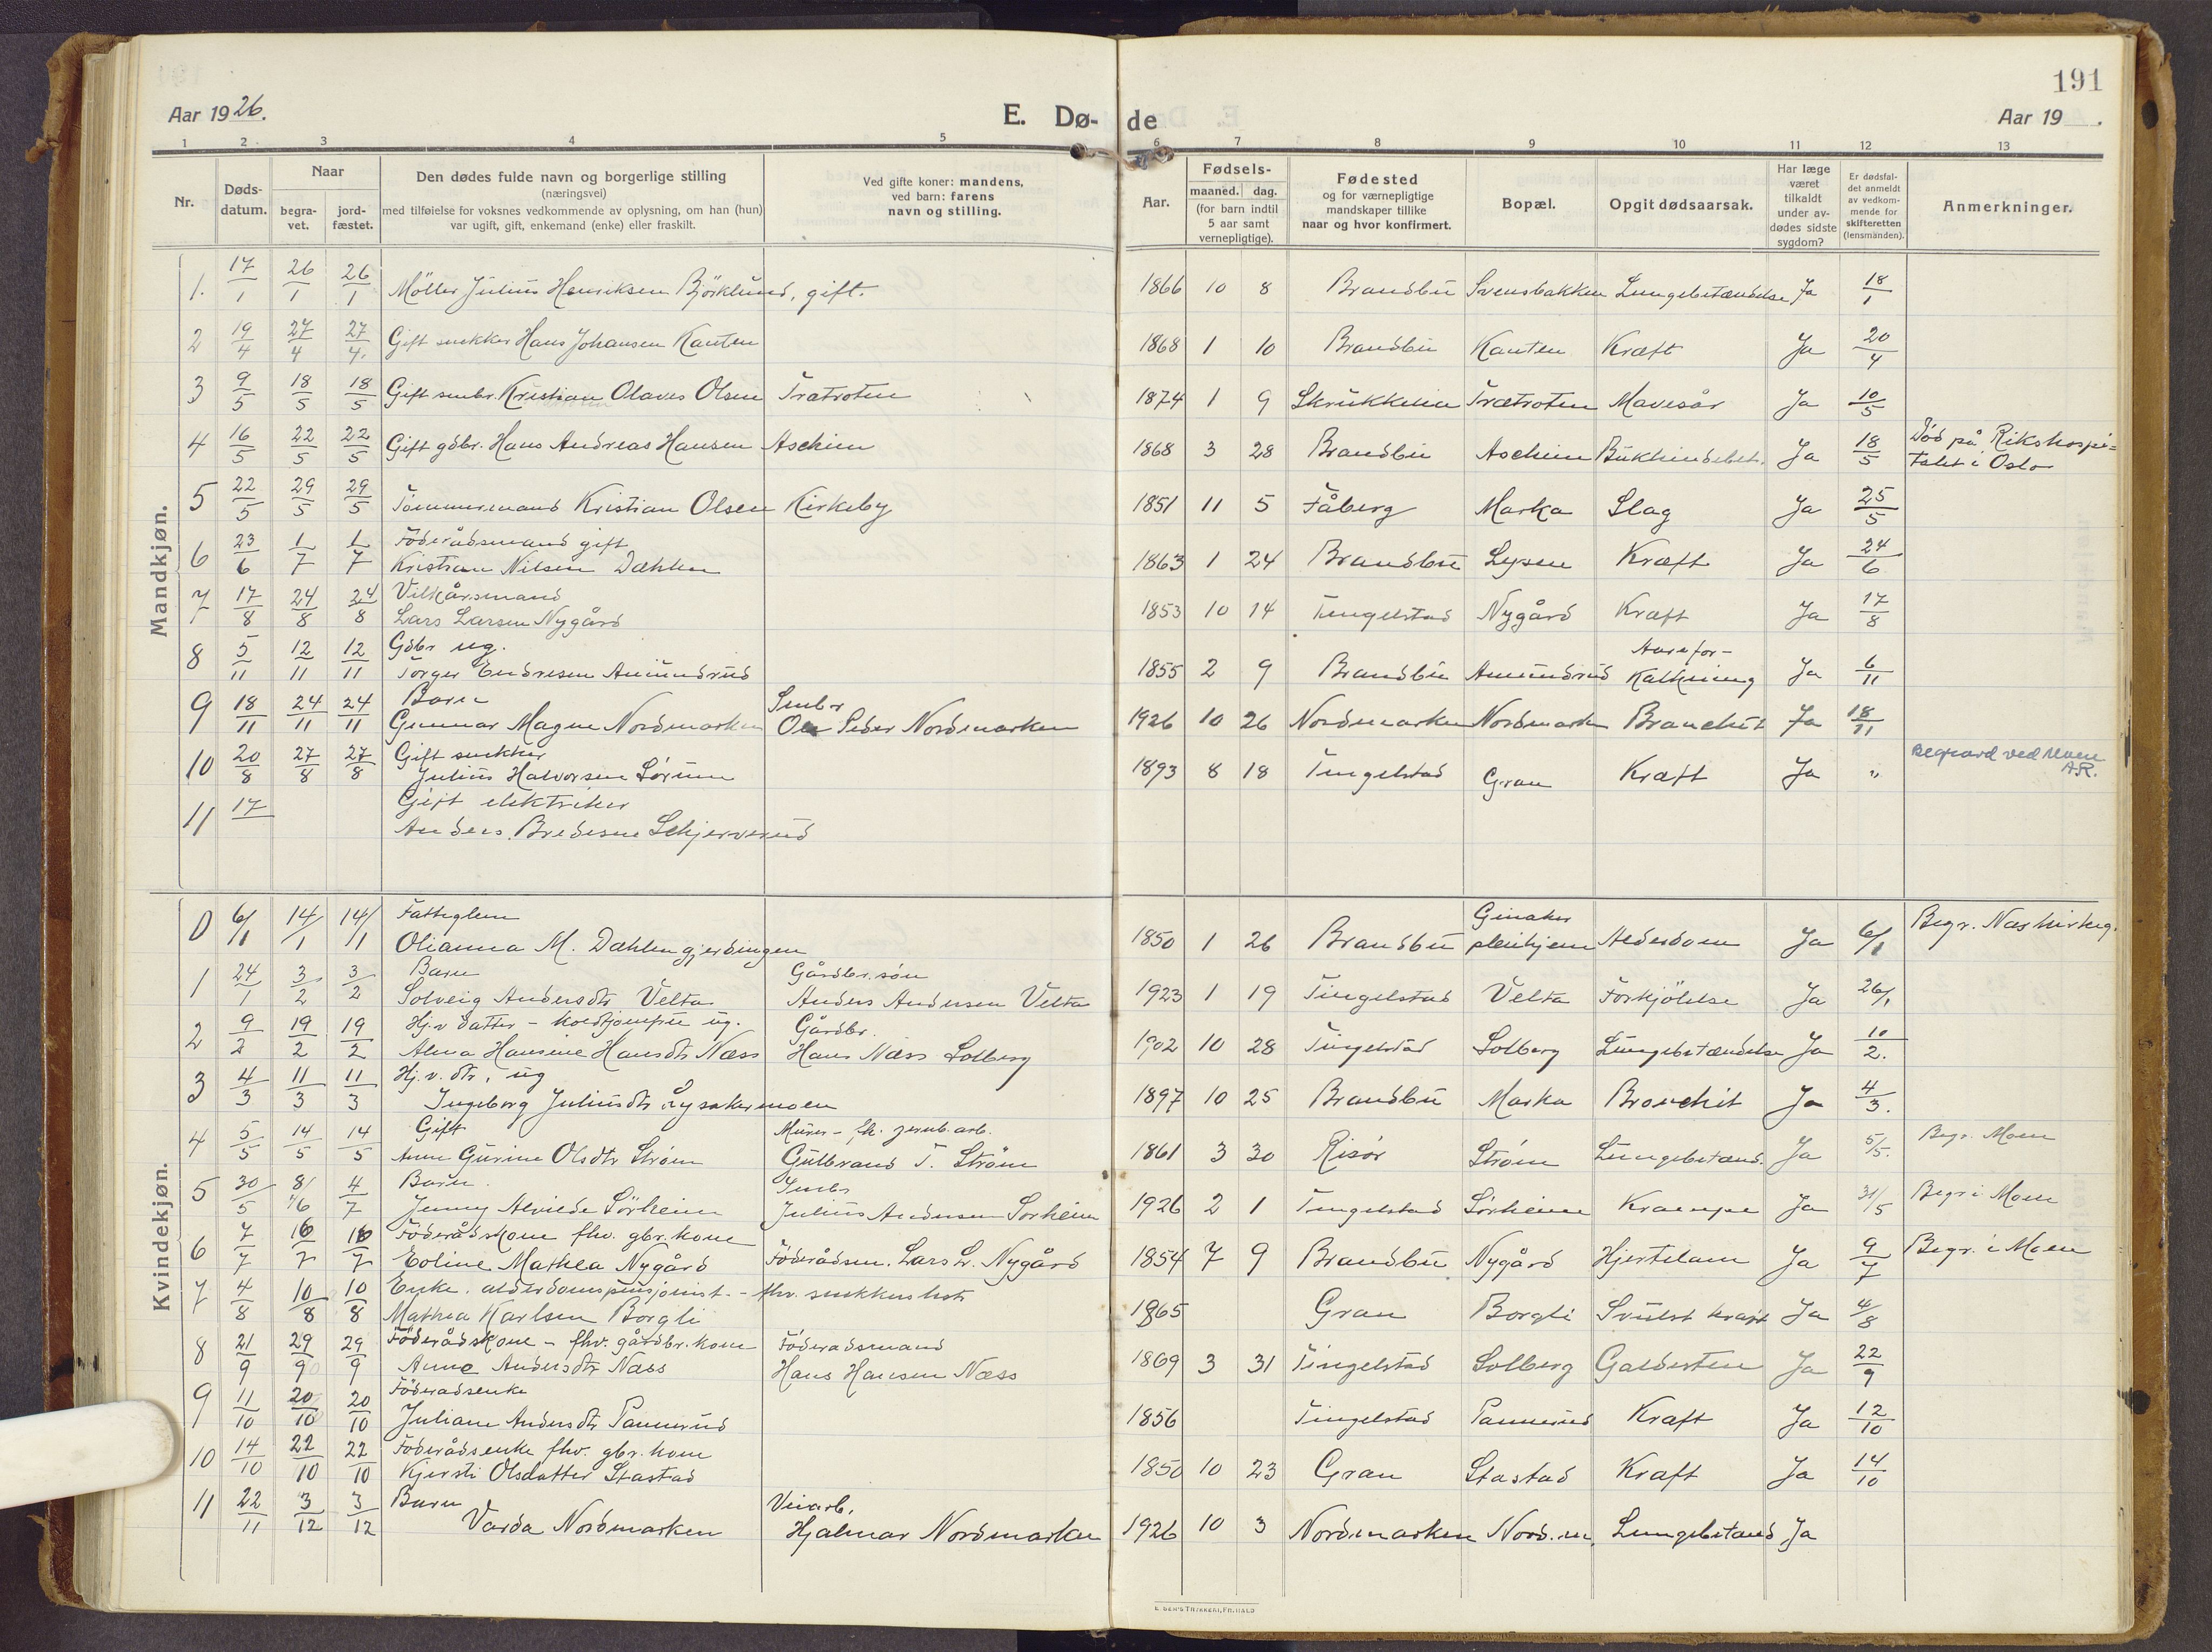 191
Aar 1926.
E. Dø- de
Aar 19 .
1 2 3 4 5 6 7 8 9 10 11 12 13
Nr.
Døds-
datum.
Naar
begra-
vet.
jord-
fæstet.
Den dødes fulde navn og borgerlige stilling
(næringsvei)
med tilføielse for voksnes vedkommende av oplysning, om han (hun)
var ugift, gift, enkemand (enke) eller fraskilt.
Ved gifte koner: mandens,
ved barn: farens
navn og stilling.
Aar.
Fødsels-
maaned. dag.
(for barn indtil
5 aar samt
vernepligtige).
Fødested
og for værnepligtige
mandskaper tillike
naar og hvor konfirmert.
Bopæl.
Opgit dødsaarsak.
Har læge
været
tilkaldt
under av-
dødes sidste
sygdom?
Er dødsfal-
det anmeldt
av vedkom-
mende for
skifteretten
(lensmanden).
Anmerkninger.
Mandkjøn.
1. 17/1 26/1 26/1 Möller Julius Henriksen Björklund, gift. 1866 10 8 Brandbu Svensbakken Lungebetændelse Ja 18/1
2 19/4 27/4 27/4. Gift snekker Hans Johansen Kanten 1868 1 10 Brandbu Kanten Kræft Ja 20/4
3 9/5 18/5 18/5 Gift smbr. Kristian Olaves Olsen Trætroten 1874 1 9 Skrukkelia Trætroten Mavesår Ja 10/5
4 16/5 22/5 22/5 Gift gdbr. Hans Andreas Hansen Aschim 1868 3 28 Brandbu Aschim Bukhindebet. Ja 18/5 Död på Rikshospi=
talet i Oslo
5 22/5 29/5 29/5 Tömmermand Kristian Olsen Kirkeby 1851 11 5 Fåberg Marka Slag Ja 25/5
6 23/6 1/7 1/7 Föderådsmand gift
Kristian Nilsen Dæhlen 1863 1 24 Brandbu Lysen Kræft Ja 24/6
7 17/8 24/8 24/8 Vilkårsmand
Lars Larsen Nygård 1853 10 14 Tingelstad Nygård Kræft Ja 17/8
8 5/11 12/11 12/11 Gdbr ug.
Torger Endresen Amundrud 1855 2 9 Brandbu Amundrud Aarefor-
kalkning Ja 6/11
9 18/11 24/11 24/11 Barn Smbr
Gunnar Magne Nordmarken Ole Peder Nordmarken 1926 10 26 Nordmarken Nordmarken Bronchit Ja 18/11
10 20/8 27/8 27/8 Gift snekker
Julius Halvorsen Sørum 1893 8 18 Tingelstad Gran Kræft Ja " Begravd ved Moen
A.R.
11 17/ Gift elektriker
Anders Bredesen Schjerverud
Kvindekjøn.
0 6/1 14/1 14/1 Fattiglem
Olianna M. Dæhlengjerdingen 1850 1 26 Brandbu Ginaker
pleiehjem Alderdom Ja 6/1 Begr. Næs kirkeg.
1 24/1 3/2 3/2 Barn Gårdbr. søn
Solveig Andersdtr Velta Anders Andersen Velta 1923 1 19 Tingelstad Velta Forkjölelse Ja 26/1
2 9/2 19/2 19/2 Hj.v. datter - kokkjomfru ug. Gårdbr.
Alma Hansine Hansdtr Næss Hans Næss Solberg 1902 10 28 Tingelstad Solberg Lungebetændelse Ja 10/2.
3 4/3 11/3 11/3 Hj. v. dtr., ug
Ingeborg Juliusdtr Lysakermoen 1897 10 25 Brandbu Marka Bronchit Ja 4/3.
4 5/5 14/5 14/5 Gift Murer - fh. jernb. arb.
Anne Gurine Olsdtr Ström Gulbrand T. Ström 1861 3 30 Risör Ström Lungebetænd. Ja 5/5. Begr. Moen
5 30/5 8/6 4/7 Barn. Smbr
Jenny Alvilde Sörheim Julius Andersen Sorheim 1926 2 1 Tingelstad Sörheim Krampe Ja 31/5 Begr i Moen
6 7/7 16/7 16/7 Föderådskone fhv. gbr. kone
Eoline Mathea Nygård Föderådsm. Lars L. Nygård 1854 7 9 Brandbu Nygård Hjertelam Ja 9/7 Begr. i Moen
7 4/8 10/8 10/8 Enke. alderdomspensjonist. - fhv. snekkers hstr
Mathea Karlsen Borgli 1865 Gran Borgli Svulst kræft Ja 4/8
8 21/9 29/9 29/9 Föderådskone - fhv. gårdbr. kone Föderadsmand
Anne Andersdtr Næss Hans Hansen Næss 1869 3 31 Tingelstad Solberg Galdesten Ja 22/9
9 11/10 20/10 20/10 Föderadsenke
Juliane Andersdtr Pannerud 1856 Tingelstad Pannerud Kræft Ja 12/10
10 14/10 22/10 22/10 Föderådsenke fhv. gbr. kone
Kjersti Olsdatter Stastad 1850 10 23 Gran Stastad Kræft Ja 14/10
11 22/11 3/12 3/12 Barn Veiarb.
Varda Nordmarken Hjalmar Nordmarken 1926 10 3 Nordmarken Nord.m. Lungebetænd Ja